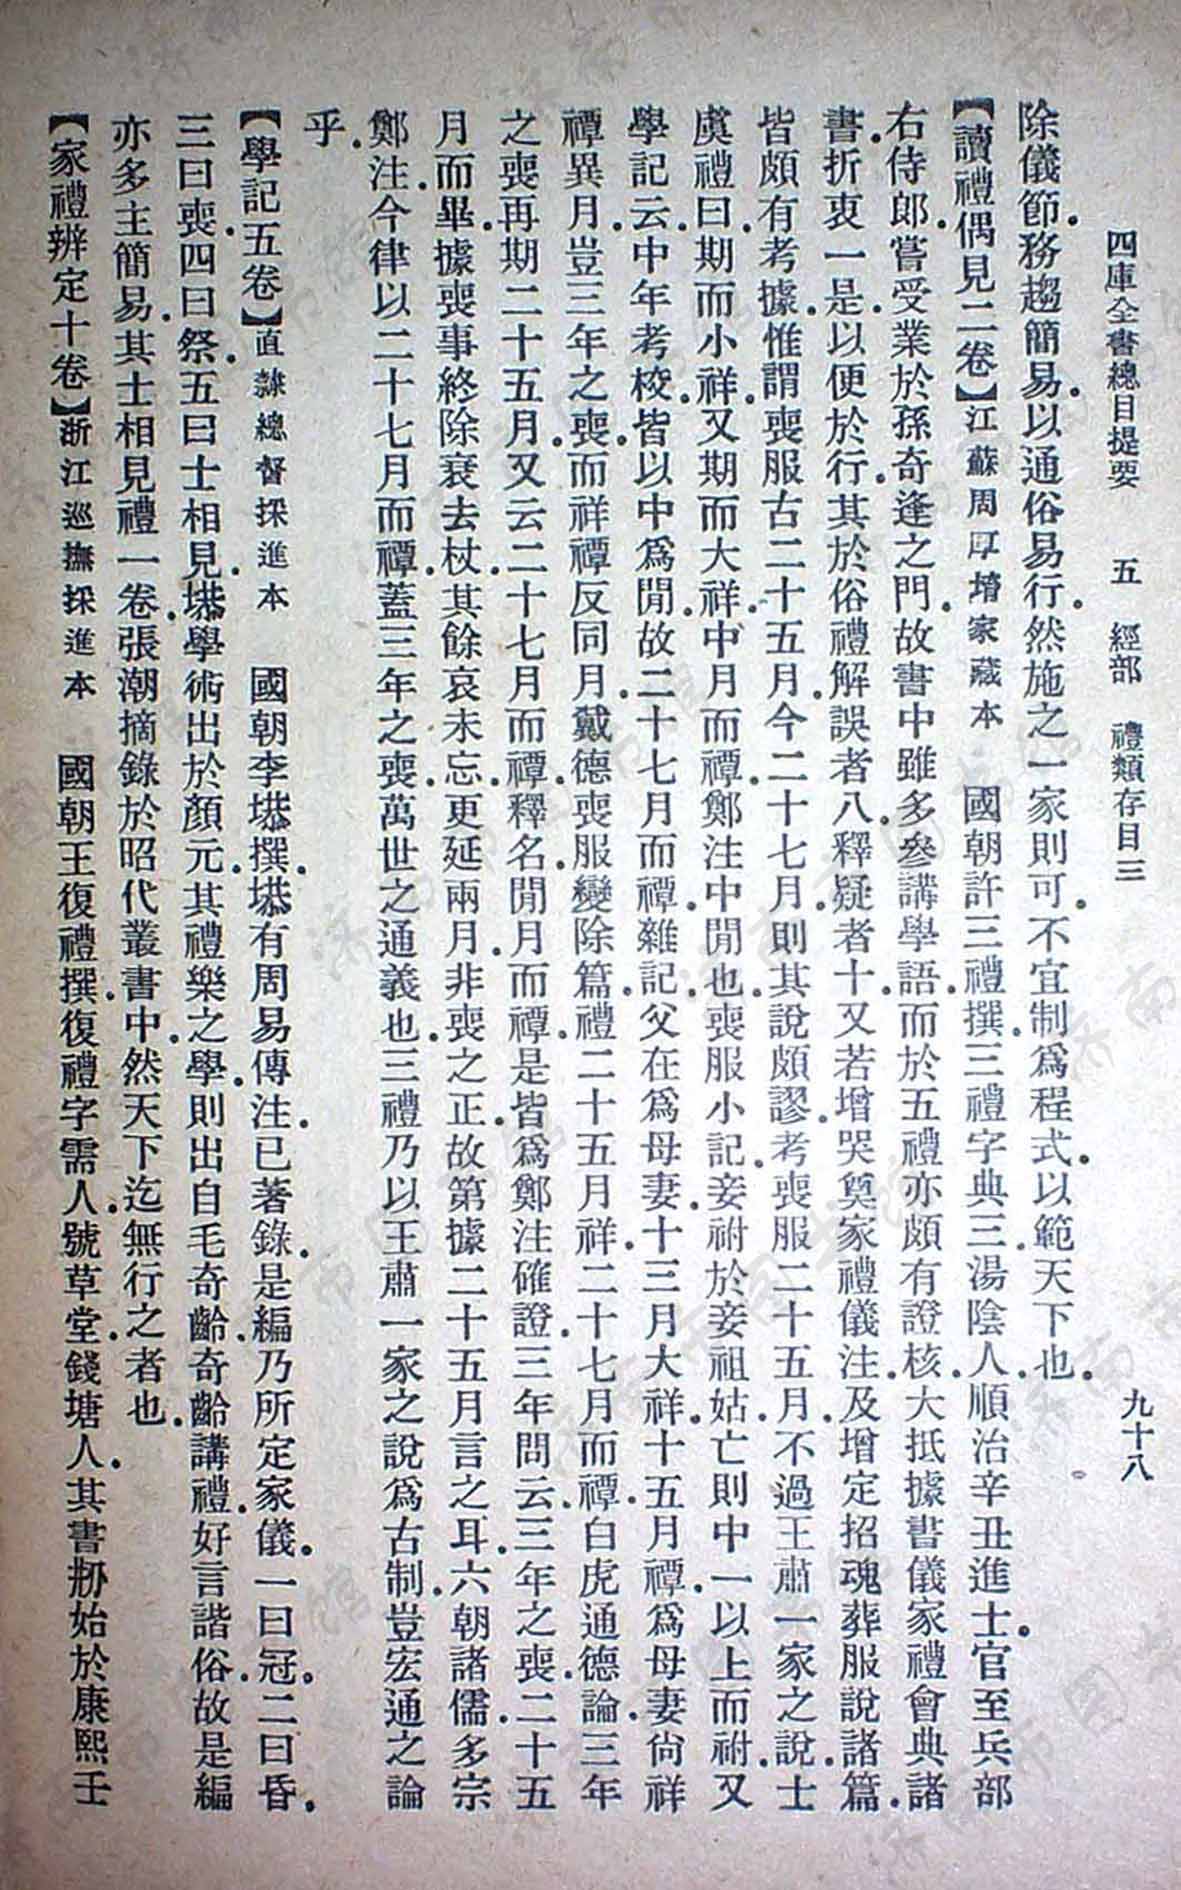 四庫全書總目提要　五　經部　禮類存目三　九十八
除儀節．務趨簡易．以通俗易行．然施之一家則可．不宜制爲程式．以範天下也．
【讀禮偶見二卷】江蘇周厚堉家藏本　國朝許三禮撰．三禮字典三．湯陰人．順治辛丑進士．官至兵部
右侍郎．嘗受業於孫奇逢之門．故書中雖多參講學語．而於五禮亦頗有證核．大抵據書儀家禮會典諸
書．折衷一是．以便於行．其於俗禮解誤者八．釋疑者十．又若增哭奠家禮儀注．及增定招魂葬服說諸篇．
皆頗有考據．惟謂喪服古二十五月．今二十七月．則其說頗謬．考喪服二十五月．不過王肅一家之說．士
虞禮曰．期而小祥．又期而大祥．中月而禫．鄭注中閒也．喪服小記．妾祔於妾祖姑．亡則中一以上而祔．又
學記云．中年考校．皆以中爲閒．故二十七月而禫．雜記．父在爲母妻．十三月大祥．十五月禫．爲母妻尙祥
禫異月．豈三年之喪．而祥禫反同月．戴德喪服變除篇．禮二十五月祥．二十七月而禫．白虎通德論．三年
之喪．再期二十五月．又云．二十七月而禫．釋名．閒月而禫．是皆爲鄭注確證．三年問云．三年之喪．二十五
月而畢．據喪事終除衰去杖．其餘哀未忘．更延兩月．非喪之正．故第據二十五月言之耳．六朝諸儒．多宗
鄭注．今律以二十七月而禫．蓋三年之喪．萬世之通義也．三禮乃以王肅一家之說爲古制．豈宏通之論
乎．
【學記五卷】直隸總督採進本　國朝李塨撰．塨有周易傳注．已著錄．是編乃所定家儀．一曰冠．二曰昏．
三曰喪．四曰祭．五曰士相見．塨學術出於顏元．其禮樂之學．則出自毛奇齡．奇齡講禮．好言諧俗．故是編
亦多主簡易．其士相見禮一卷．張潮摘錄於昭代叢書中．然天下迄無行之者也．
【家禮辨定十卷】浙江巡撫採進本　國朝王復禮撰．復禮字需人．號草堂．錢塘人．其書刱始於康熙壬